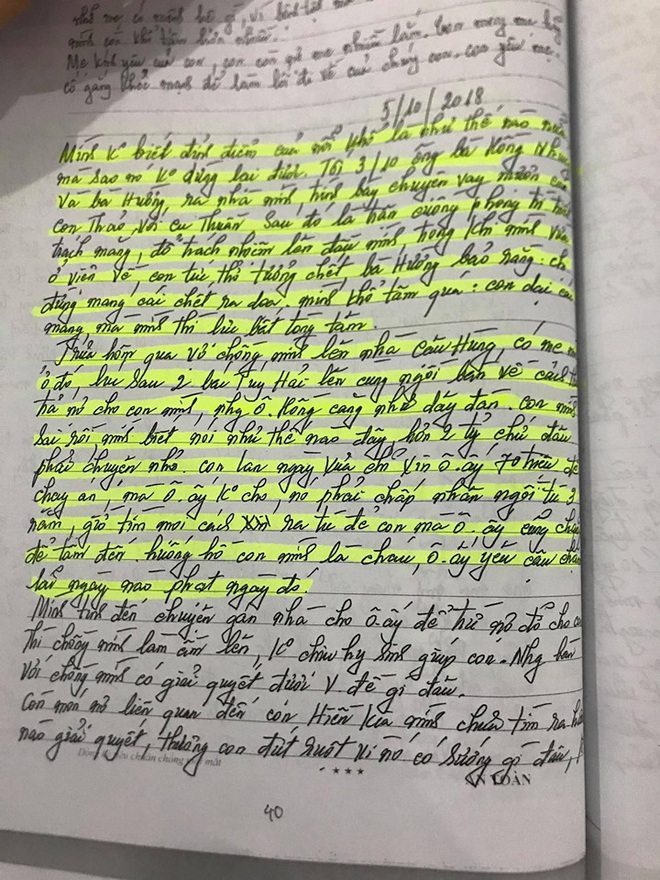 mình còn khổ tâm hơn nhiều.
Mẹ kính yêu của con, con còn nợ mẹ nhiều lắm. Con mong mẹ
cố gắng khỏe mạnh để làm lối đi về của chúng con. con yêu mẹ.
5/10/2018
Mình k° biết đỉnh điểm của nỗi khổ là như thế nào nữa
mà sao nó k° dừng lại được. Tối 3/10 ông bà Rồng Nhu
và bà Hường, ra nhà mình, trình bày chuyện vay mượn
con Thảo, với cu Thuần. Sau đó là hắn cuồng phong
trách mắng, đổ trách nhiệm lên đầu mình, trong khi mình vừa
ở viện về, con tức thở tưởng chết, bà Hường bảo rằng:
đừng mang cái chết ra dọa. mình khổ tâm quá: con dại cái
mang, mà mình thì lực bất tòng tâm
Trưa hôm qua vợ chồng mình lên nhà cậu Hùng, có mẹ
ở đó, lúc sau 2 bác Tuy Hải lên cùng ngồi bàn về cách
trả nợ cho con mình, nhg ô. Rồng căng như dây đàn. con mình
sai rồi mình biết nói như thế nào đây, hơn 2 tỷ chứ đâu
phải chuyện nhỏ. con Lan ngày vừa chỉ xin ô. ấy 70 triệu để
chạy án, mà ô. ấy k° cho, nó phải chấp nhận ngồi tù 3
năm, giờ tìm mọi cách ra tù để con mà ô. ấy cũng
để tâm đến. huống hồ con mình là cháu, ô. ấy yêu cầu
lãi ngày nào phạt ngày đó.
Mình tính đến chuyện gán nhà cho ô. ấy để trừ nợ đỡ cho
thì chồng mình làm ầm lên, k° chịu hy sinh giúp con. Nhg bàn
với chồng mình có giải quyết được V đề gì đâu.
Còn món nợ liên quan đến con Hiền kia mình chưa tìm ra
nào giải quyết, thương con đứt ruột vì nó có sướng gì đâu,
★★★
AN TOÀN
40